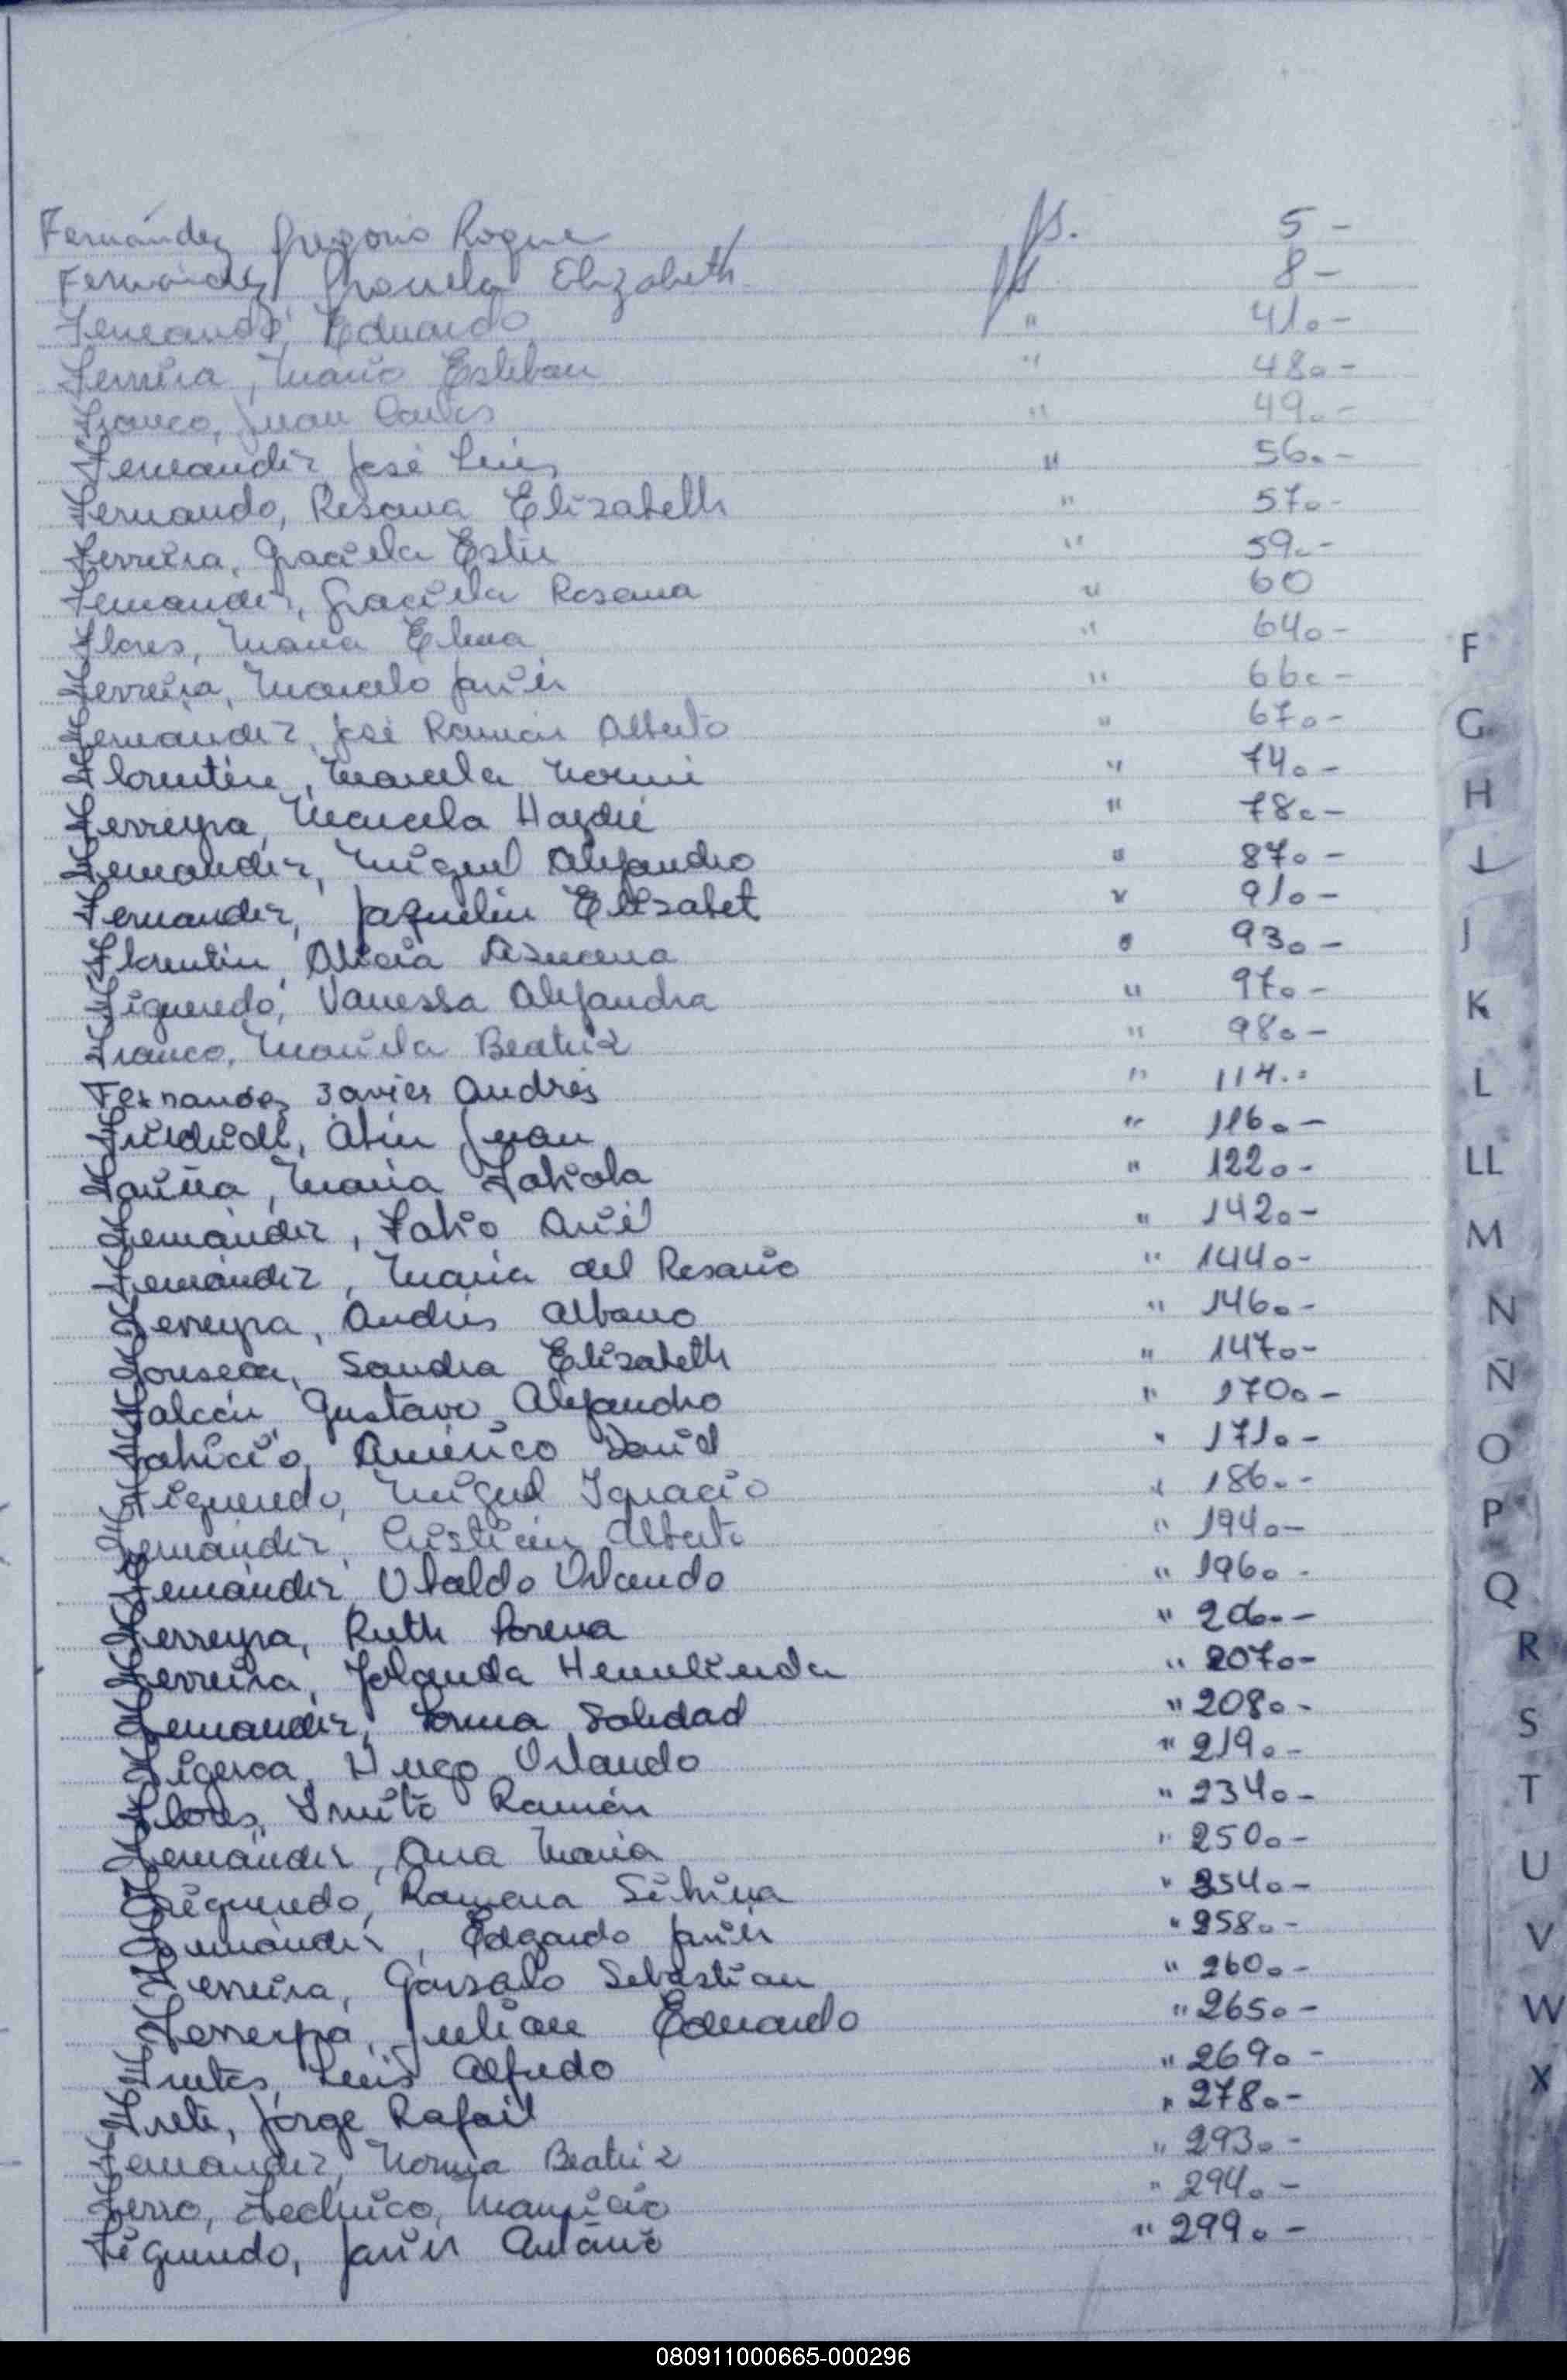 Fernández Gregorio Roque fs. 5 -
Fernández Graciela Elizabeth fs 8 -
Fernande, Eduardo " 41.-
Ferreira, Mario Esteban " 48.-
Franco, Juan Carlos " 49.-
Fernandez José Luis " 56.-
Fernando, Rosana Elizabeth " 57.-
Ferreira, Graciela Ester " 59.-
Fernandez, Graciela Rosana " 60
Flores, Maria Elena " 64.-
Ferreira, Marcelo Javier " 66.-
Fernández, José Ramón Alberto " 67.-
Florentin, Marcela Noemi " 74.-
Ferreyra, Marcela Haydeé " 78.-
Fernandez, Miguel Alejandro " 87.-
Fernandez, Jaquelin Elisabet " 91.-
Florentin, Alicia Asucena " 93.-
Figueredo, Vanessa Alejandra " 97.-
Franco, Mariela Beatriz " 98.-
Fernandez Javier Andrés " 114..
Juan " 116.-
Fariña, Maria Fabiola " 122.-
Fernández, Fabio Ariel " 142.-
Fernández, Maria del Rosario " 144.-
Ferreyra, Andrés Albano " 146.-
Fonseca, Sandra Elizabeth " 147.-
Falcón Gustavo Alejandro " 170.-
Fabricio, Américo David " 171.-
Figueredo, Miguel Ignacio " 186.-
Fernández, Cristián Alberto " 194.-
Fernández, Ubaldo Orlando " 196.-
Ferreyra, Ruth Lorena " 206.-
Ferreira, Yolanda Hermelinda " 207.-
Fernandez, Lorena Soledad " 208.-
Figeroa, Hugo Orlando " 219.-
Flores, Ramón " 234.-
Fernández, Ana Maria " 250.-
Figueredo, Ramona Silvina " 254.-
Fernández, Edgardo Javier " 258.-
Ferreira, Gonzalo Sebastian " 260.-
Ferreyra, Julian Eduardo " 265.-
Fretes, Luis Alfredo " 269.-
Frete, Jorge Rafael " 278.-
Fernandez, Norma Beatriz " 293.-
Fierro, Federico, Mauricio " 294.-
Figueredo, Javier Antonio " 299.-
F
G
H
I
J
K
L
LL
M
N
Ñ
O
P
Q
R
S
T
U
V
W
X
080911000665-000296